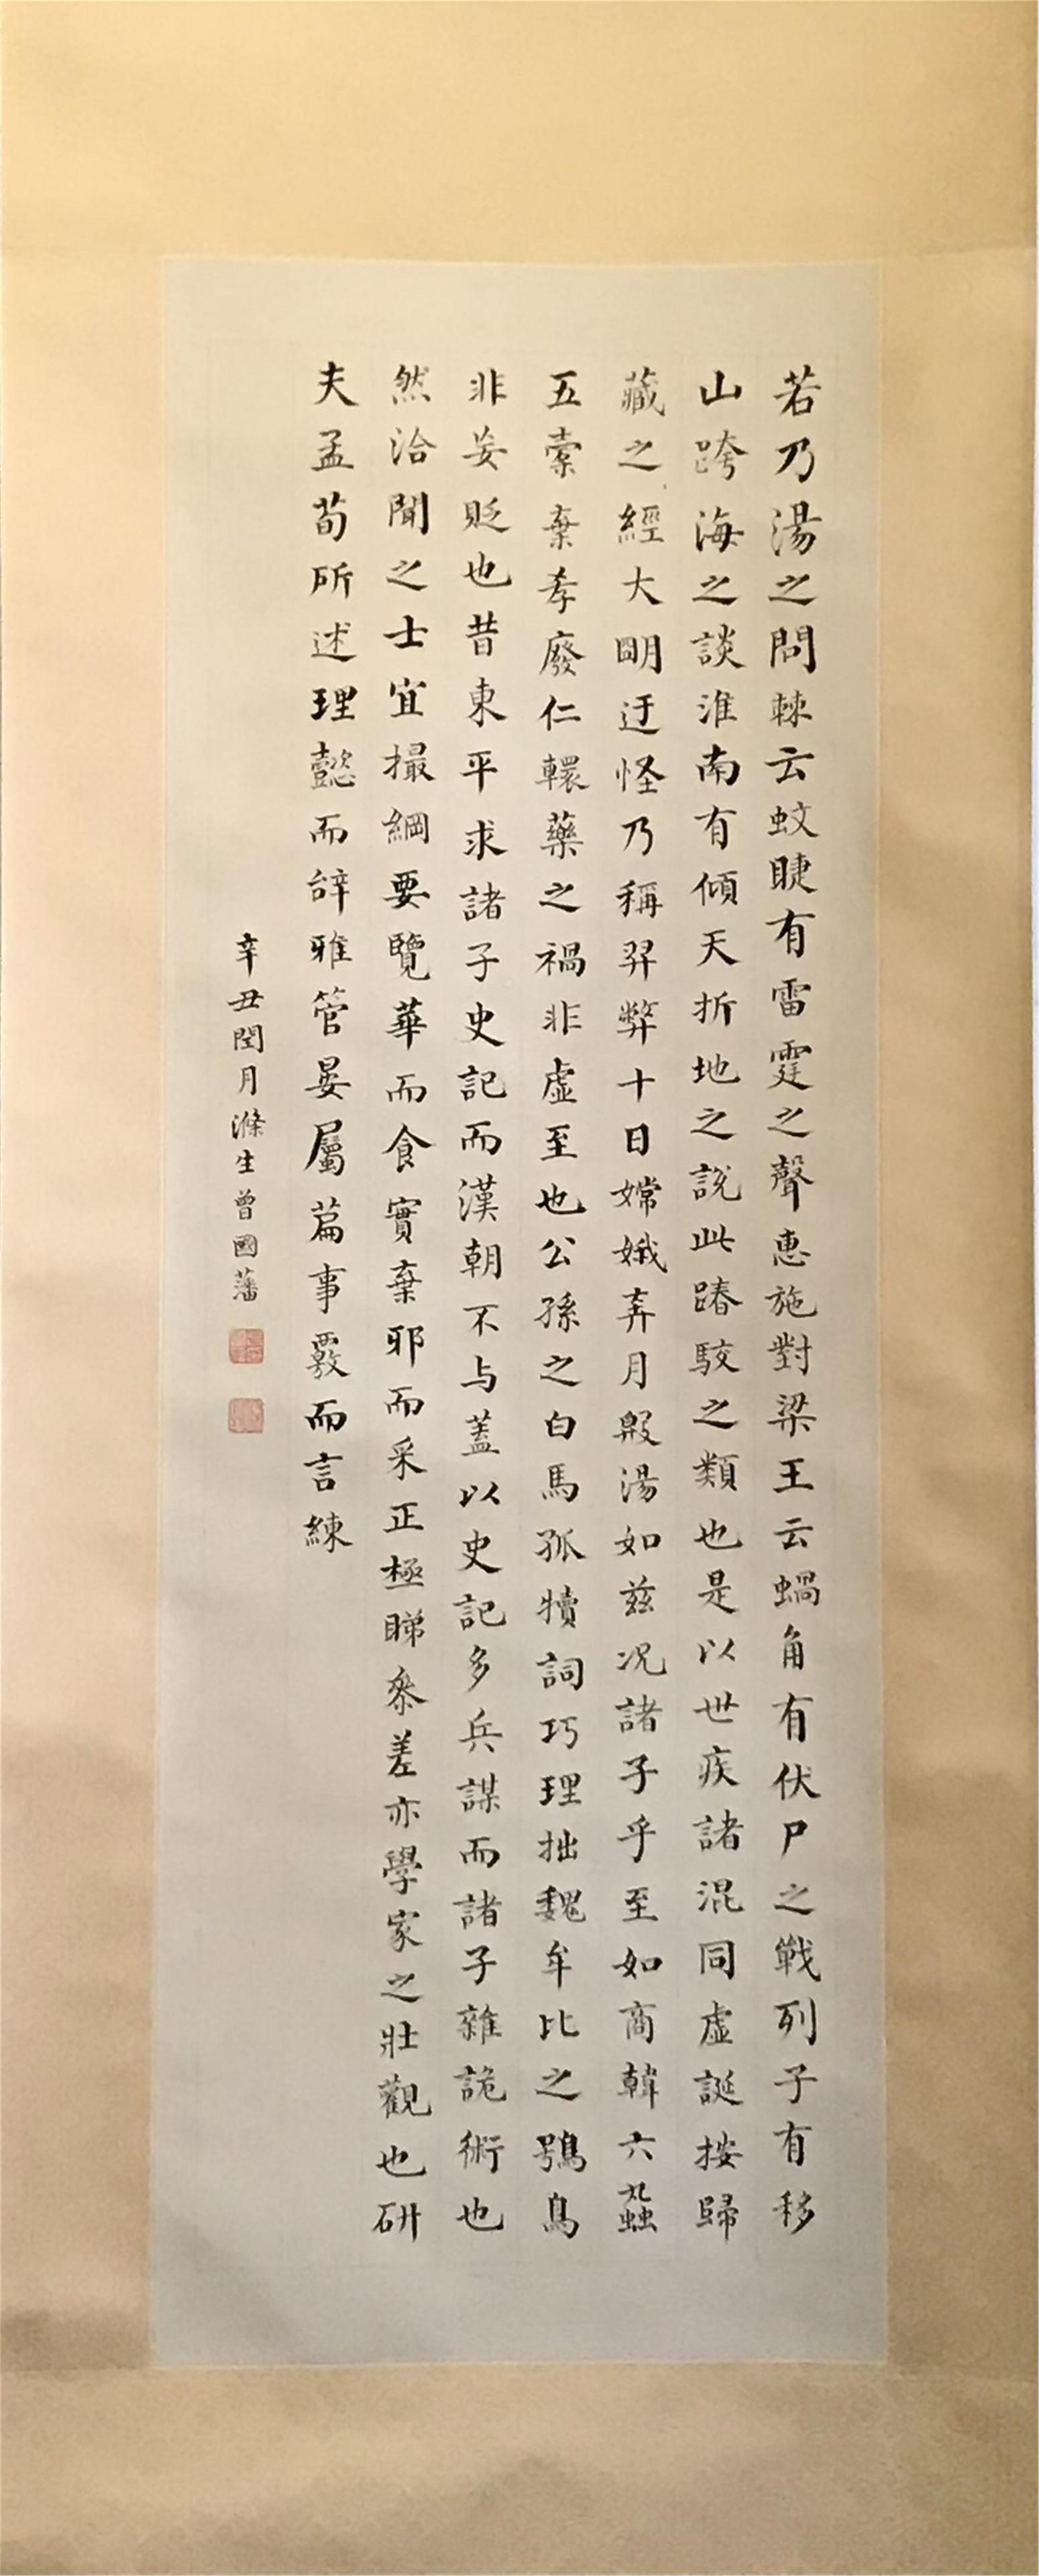 若乃湯之問棘云蚊睫有雷霆之聲惠施對梁王云蝸角有伏尸之戰列子有移
山跨海之談淮南有傾天折地之說此踳駮之類也是以世疾諸混同虛誕按歸
藏之經大明迂怪乃稱羿弊十日嫦娥弄月殷湯如茲况諸子乎至如商韓六蝨
五蠹棄孝廢仁轘藥之禍非虛至也公孫之白馬孤犢詞巧理拙魏牟比之鴞鳥
非妄貶也昔東平求諸子史記而漢朝不与蓋以史記多兵謀而諸子雜詭術也
然洽聞之士宜撮綱要覽華而食實棄邪而采正極睇參差亦學家之壯觀也研
夫孟荀所述理懿而辞雅管晏屬篇事覈而言練
辛丑閏月滌生曾國藩